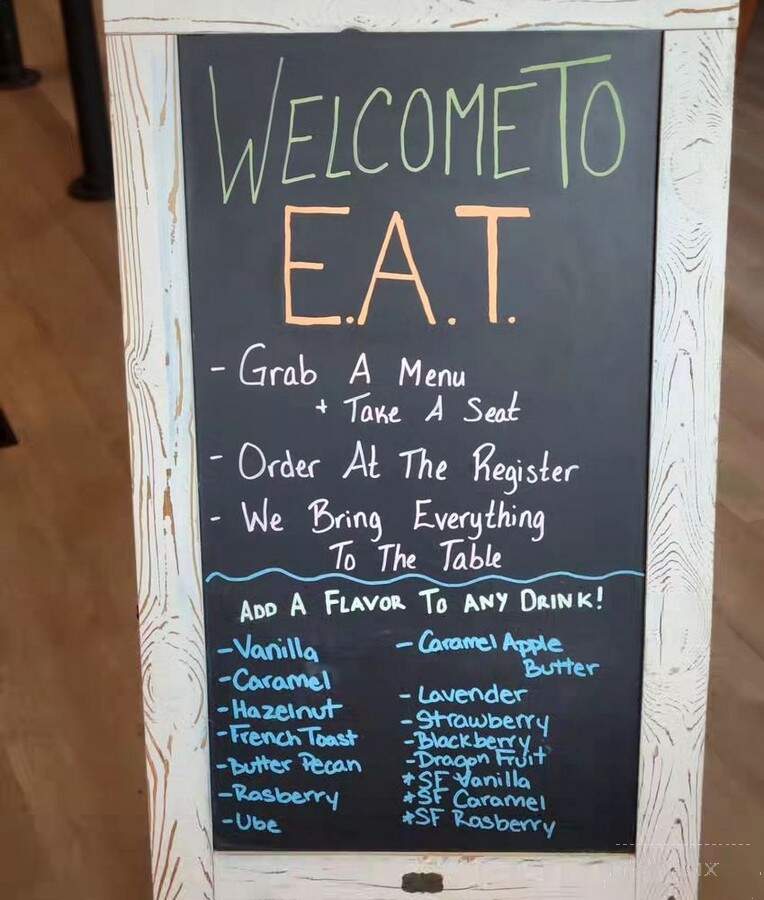 WELCOME TO
E.A.T.
- Grab A Menu
+ Take A Seat
- Order At The Register
- We Bring Everything
To The Table
ADD A FLAVOR TO ANY DRINK!
- Vanilla
- Caramel
- Hazelnut
- French Toast
- Butter Pecan
- Rasberry
- Ube
- Caramel Apple
Butter
- Lavender
- Strawberry
- Blackberry
- Dragon Fruit
*SF Vanilla
*SF Caramel
*SF Rasberry